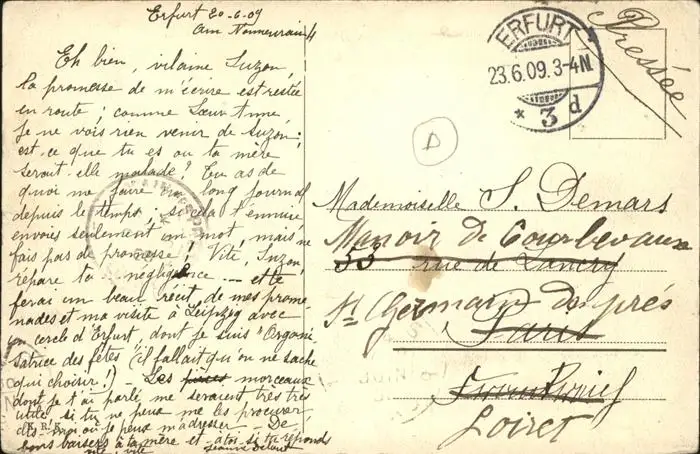 Erfurt 20-6-09
Am
Eh bien, vilaine Suzon,
la promesse de m'écrire est restée
en route; comme Sœur Anne,
je ne vois rien venir de Suzon;
est-ce que tu es ou ta mère
serait-elle malade? Tu as de
quoi me faire un long journal
depuis le temps; si cela t'ennuie
envoies seulement un mot, mais ne
fais pas de promesse; Vite, Suzon,
répare ta négligence --- et te
ferai un beau récit de mes prome-
nades et ma visite à Leipzig avec
un cercle d'Erfurt, dont je suis "Organi-
satrice des fêtes" (il fallait qu'on ne sache
qui choisir!) Les morceaux
dont je t'ai parlé me seraient très très
utile si tu ne peux me les procurer
dis-moi où je peux m'adresser - De
bons baisers à ta mère et à toi si tu réponds
vite
Pressée
ERFURT
23.6.09. 3-4N.
* 3 d
D
Mademoiselle S. Demars
Manoir de Courbevaux
53 rue de Lancry
St Germain des prés
Paris
Loiret